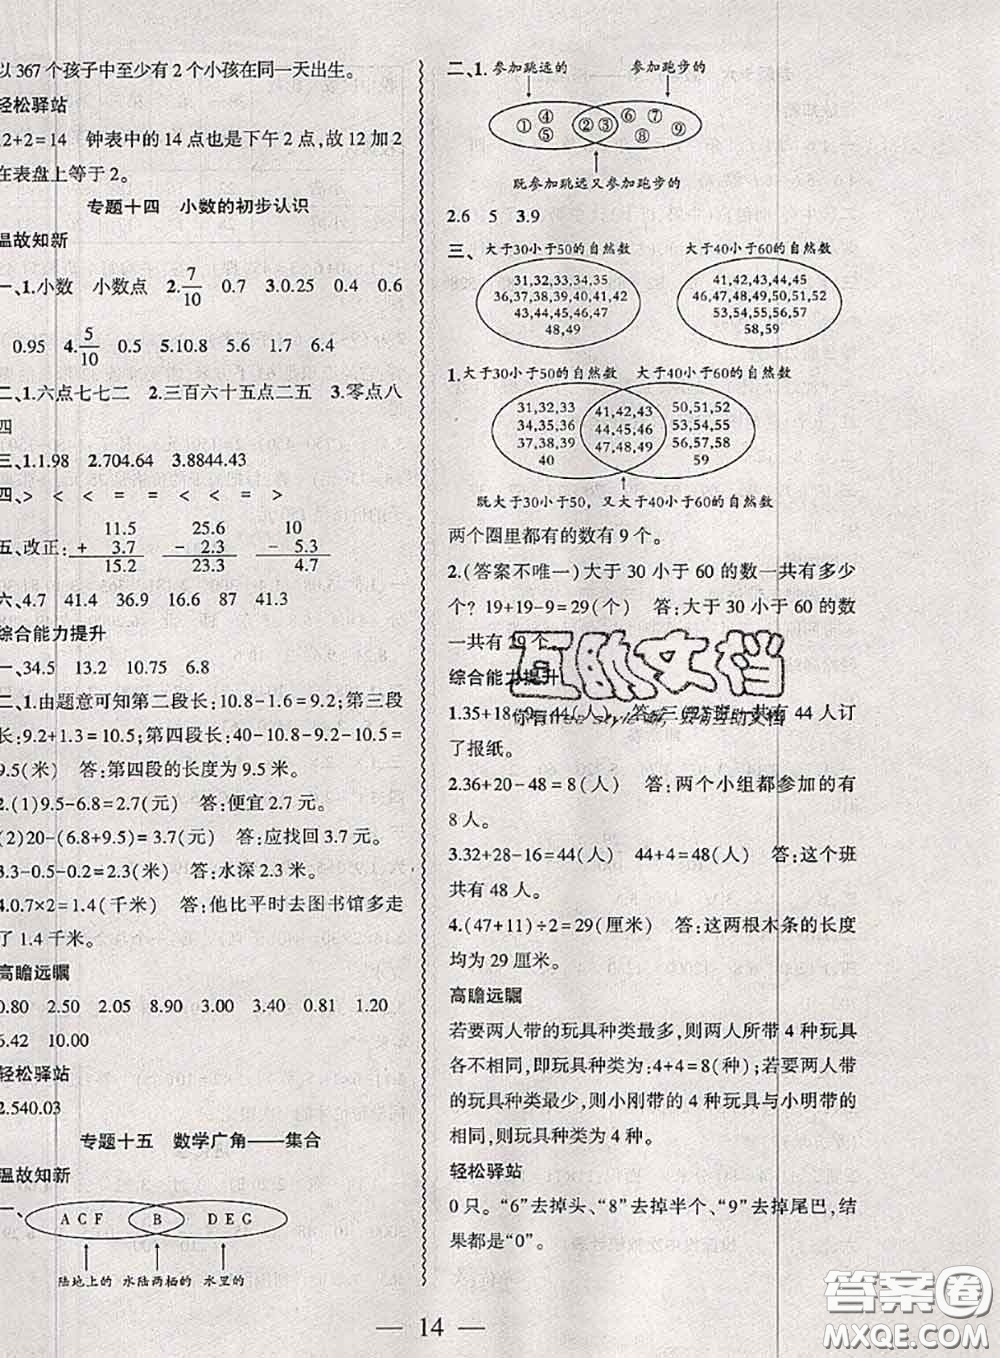 以 367 个孩子中至少有 2 个小孩在同一天出生。
轻松驿站
12+2=14 钟表中的 14 点也是下午 2 点，故 12 加 2
在表盘上等于 2。
专题十四 小数的初步认识
温故知新
一、1.小数 小数点 2.7/10 0.7 3.0.25 0.4 0.6
0.95 4.5/10 0.5 5.10.8 5.6 1.7 6.4
二、1.六点七七二 2.三百六十五点二五 3.零点八
四
三、1.1.98 2.704.64 3.8844.43
四、> < < = = < < = >
五、改正：
11.5 25.6 10
+ 3.7 - 2.3 - 5.3
15.2 23.3 4.7
六、4.7 41.4 36.9 16.6 87 41.3
综合能力提升
一、34.5 13.2 10.75 6.8
二、1.由题意可知第二段长：10.8-1.6=9.2；第三段
长：9.2+1.3=10.5；第四段长：40-10.8-9.2-10.5=
9.5(米) 答：第四段的长度为 9.5 米。
2.(1)9.5-6.8=2.7(元) 答：便宜 2.7 元。
(2)20-(6.8+9.5)=3.7(元) 答：应找回 3.7 元。
3.3-0.5-0.2=2.3(米) 答：水深 2.3 米。
4.0.7×2=1.4(千米) 答：他比平时去图书馆多走
了 1.4 千米。
高瞻远瞩
0.80 2.50 2.05 8.90 3.00 3.40 0.81 1.20
6.42 10.00
轻松驿站
2.540.03
专题十五 数学广角——集合
温故知新
一、
A C F B D E G
陆地上的 水陆两栖的 水里的
二、1. 参加跳远的 参加跑步的
① ④ ⑤ ② ③ ⑥ ⑦ ⑧ ⑨
既参加跳远又参加跑步的
2.6 5 3.9
三、 大于30小于50的自然数 大于40小于60的自然数
31,32,33,34,35
36,37,38,39,40,41,42
43,44,45,46,47
48,49
41,42,43,44,45
46,47,48,49,50,51,52
53,54,55,56,57
58,59
1. 大于30小于50的自然数 大于40小于60的自然数
31,32,33
34,35,36
37,38,39
40
41,42,43
44,45,46
47,48,49
50,51,52
53,54,55
56,57,58
59
既大于30小于50，又大于40小于60的自然数
两个圈里都有的数有 9 个。
2.(答案不唯一)大于 30 小于 60 的数一共有多少
个？19+19-9=29(个) 答：大于 30 小于 60 的数
一共有 29 个。
互助文档
综合能力提升
1.35+18-9=44(人) 答：三 班一共有 44 人订
了报纸。
2.36+20-48=8(人) 答：两个小组都参加的有
8 人。
3.32+28-16=44(人) 44+4=48(人) 答：这个班
共有 48 人。
4.(47+11)÷2=29(厘米) 答：这两根木条的长度
均为 29 厘米。
高瞻远瞩
若要两人带的玩具种类最多，则两人所带 4 种玩具
各不相同，即玩具种类为：4+4=8(种)；若要两人带
的玩具种类最少，则小刚带的 4 种玩具与小明带的
相同，则玩具种类为 4 种。
轻松驿站
0 只。“6”去掉头、“8”去掉半个、“9”去掉尾巴，结
果都是“0”。
— 14 —
答案圈
MXQE.COM